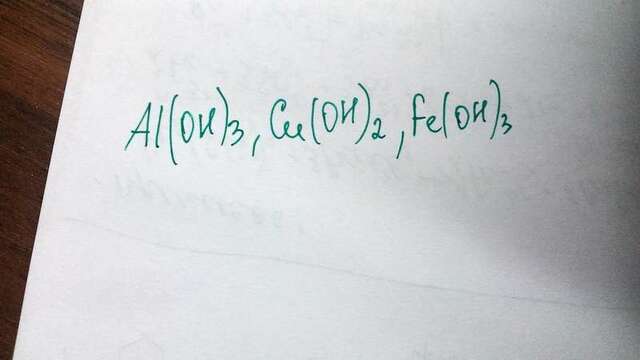 Al(OH)3, Cu(OH)2, Fe(OH)3